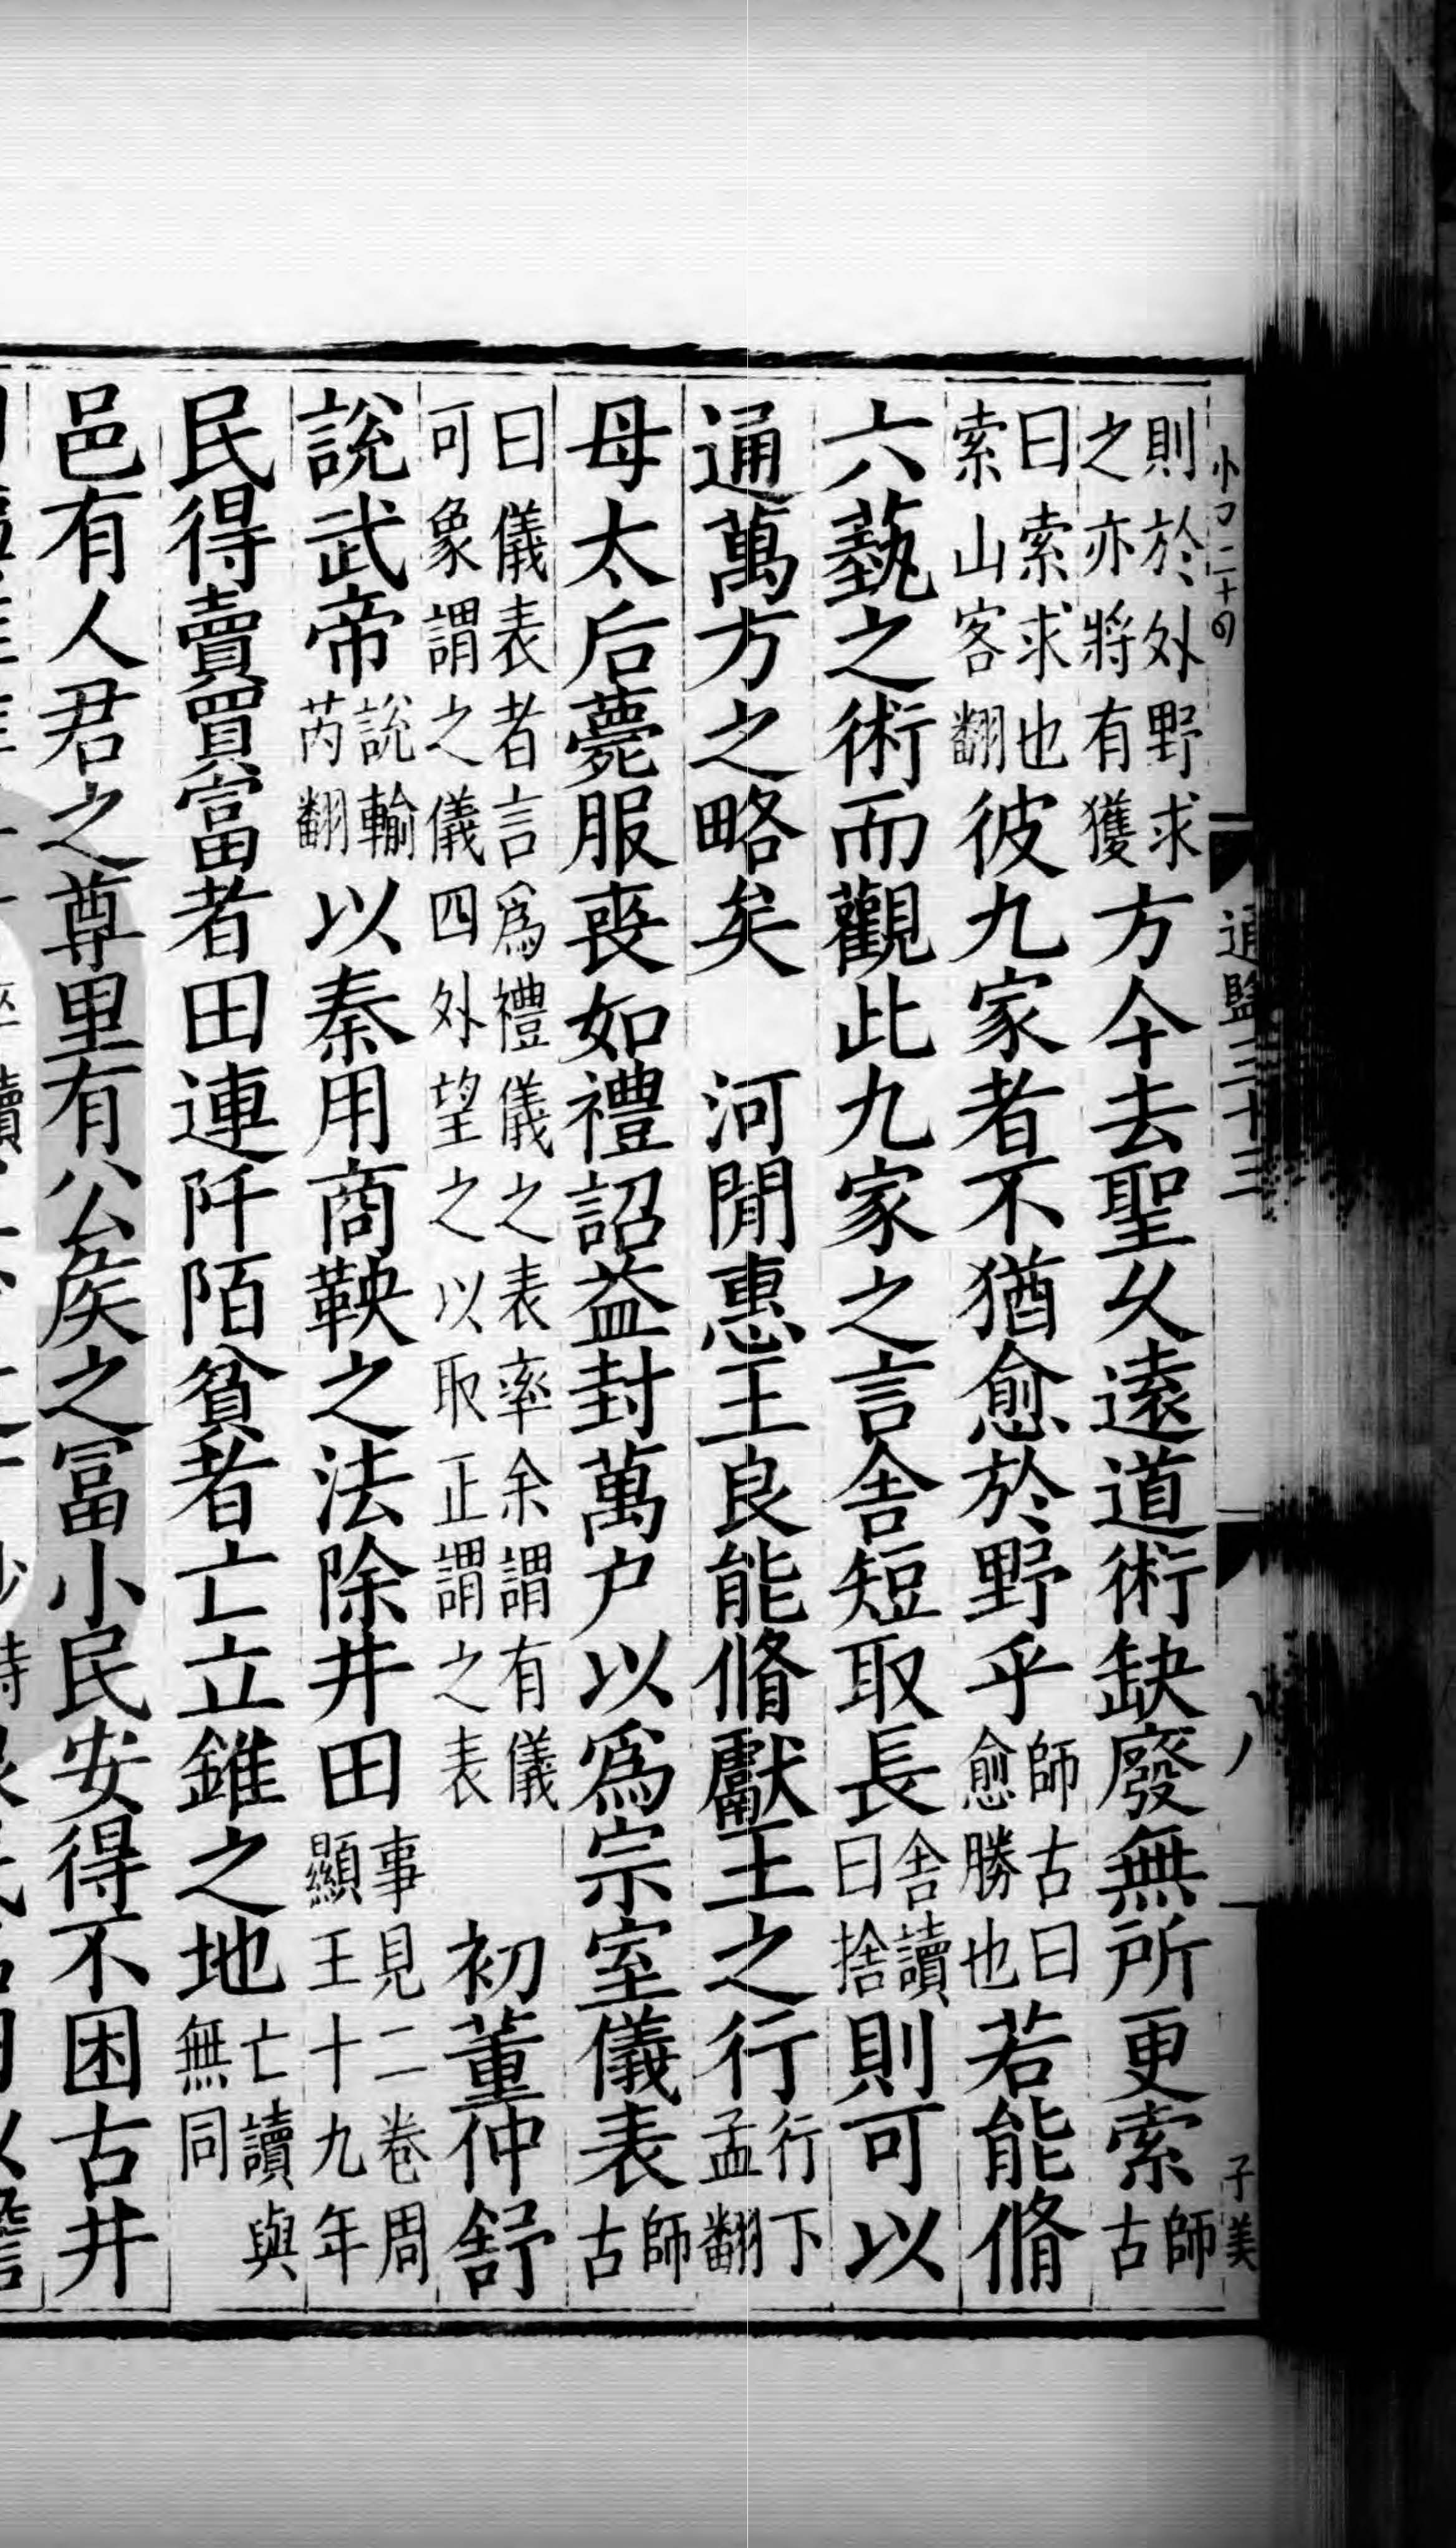 通鑑三十三
子美
則於外野求之亦將有獲方今去聖乆遠道術缺廢無所更索師古
曰索求也索山客翻彼九家者不猶愈於野乎師古曰愈勝也若能脩
六蓺之術而觀此九家之言舍短取長舍讀曰捨則可以
通萬方之略矣　河閒惠王良能脩獻王之行行下孟翻
母太后薨服喪如禮詔益封萬户以爲宗室儀表師古
曰儀表者言爲禮儀之表率余謂有儀可象謂之儀四外望之以取正謂之表　初董仲舒
說武帝說輸芮翻以秦用商鞅之法除井田事見二卷周顯王十九年
民得賣買富者田連阡陌貧者亡立錐之地亡讀與無同
邑有人君之尊里有公矦之冨小民安得不困古井